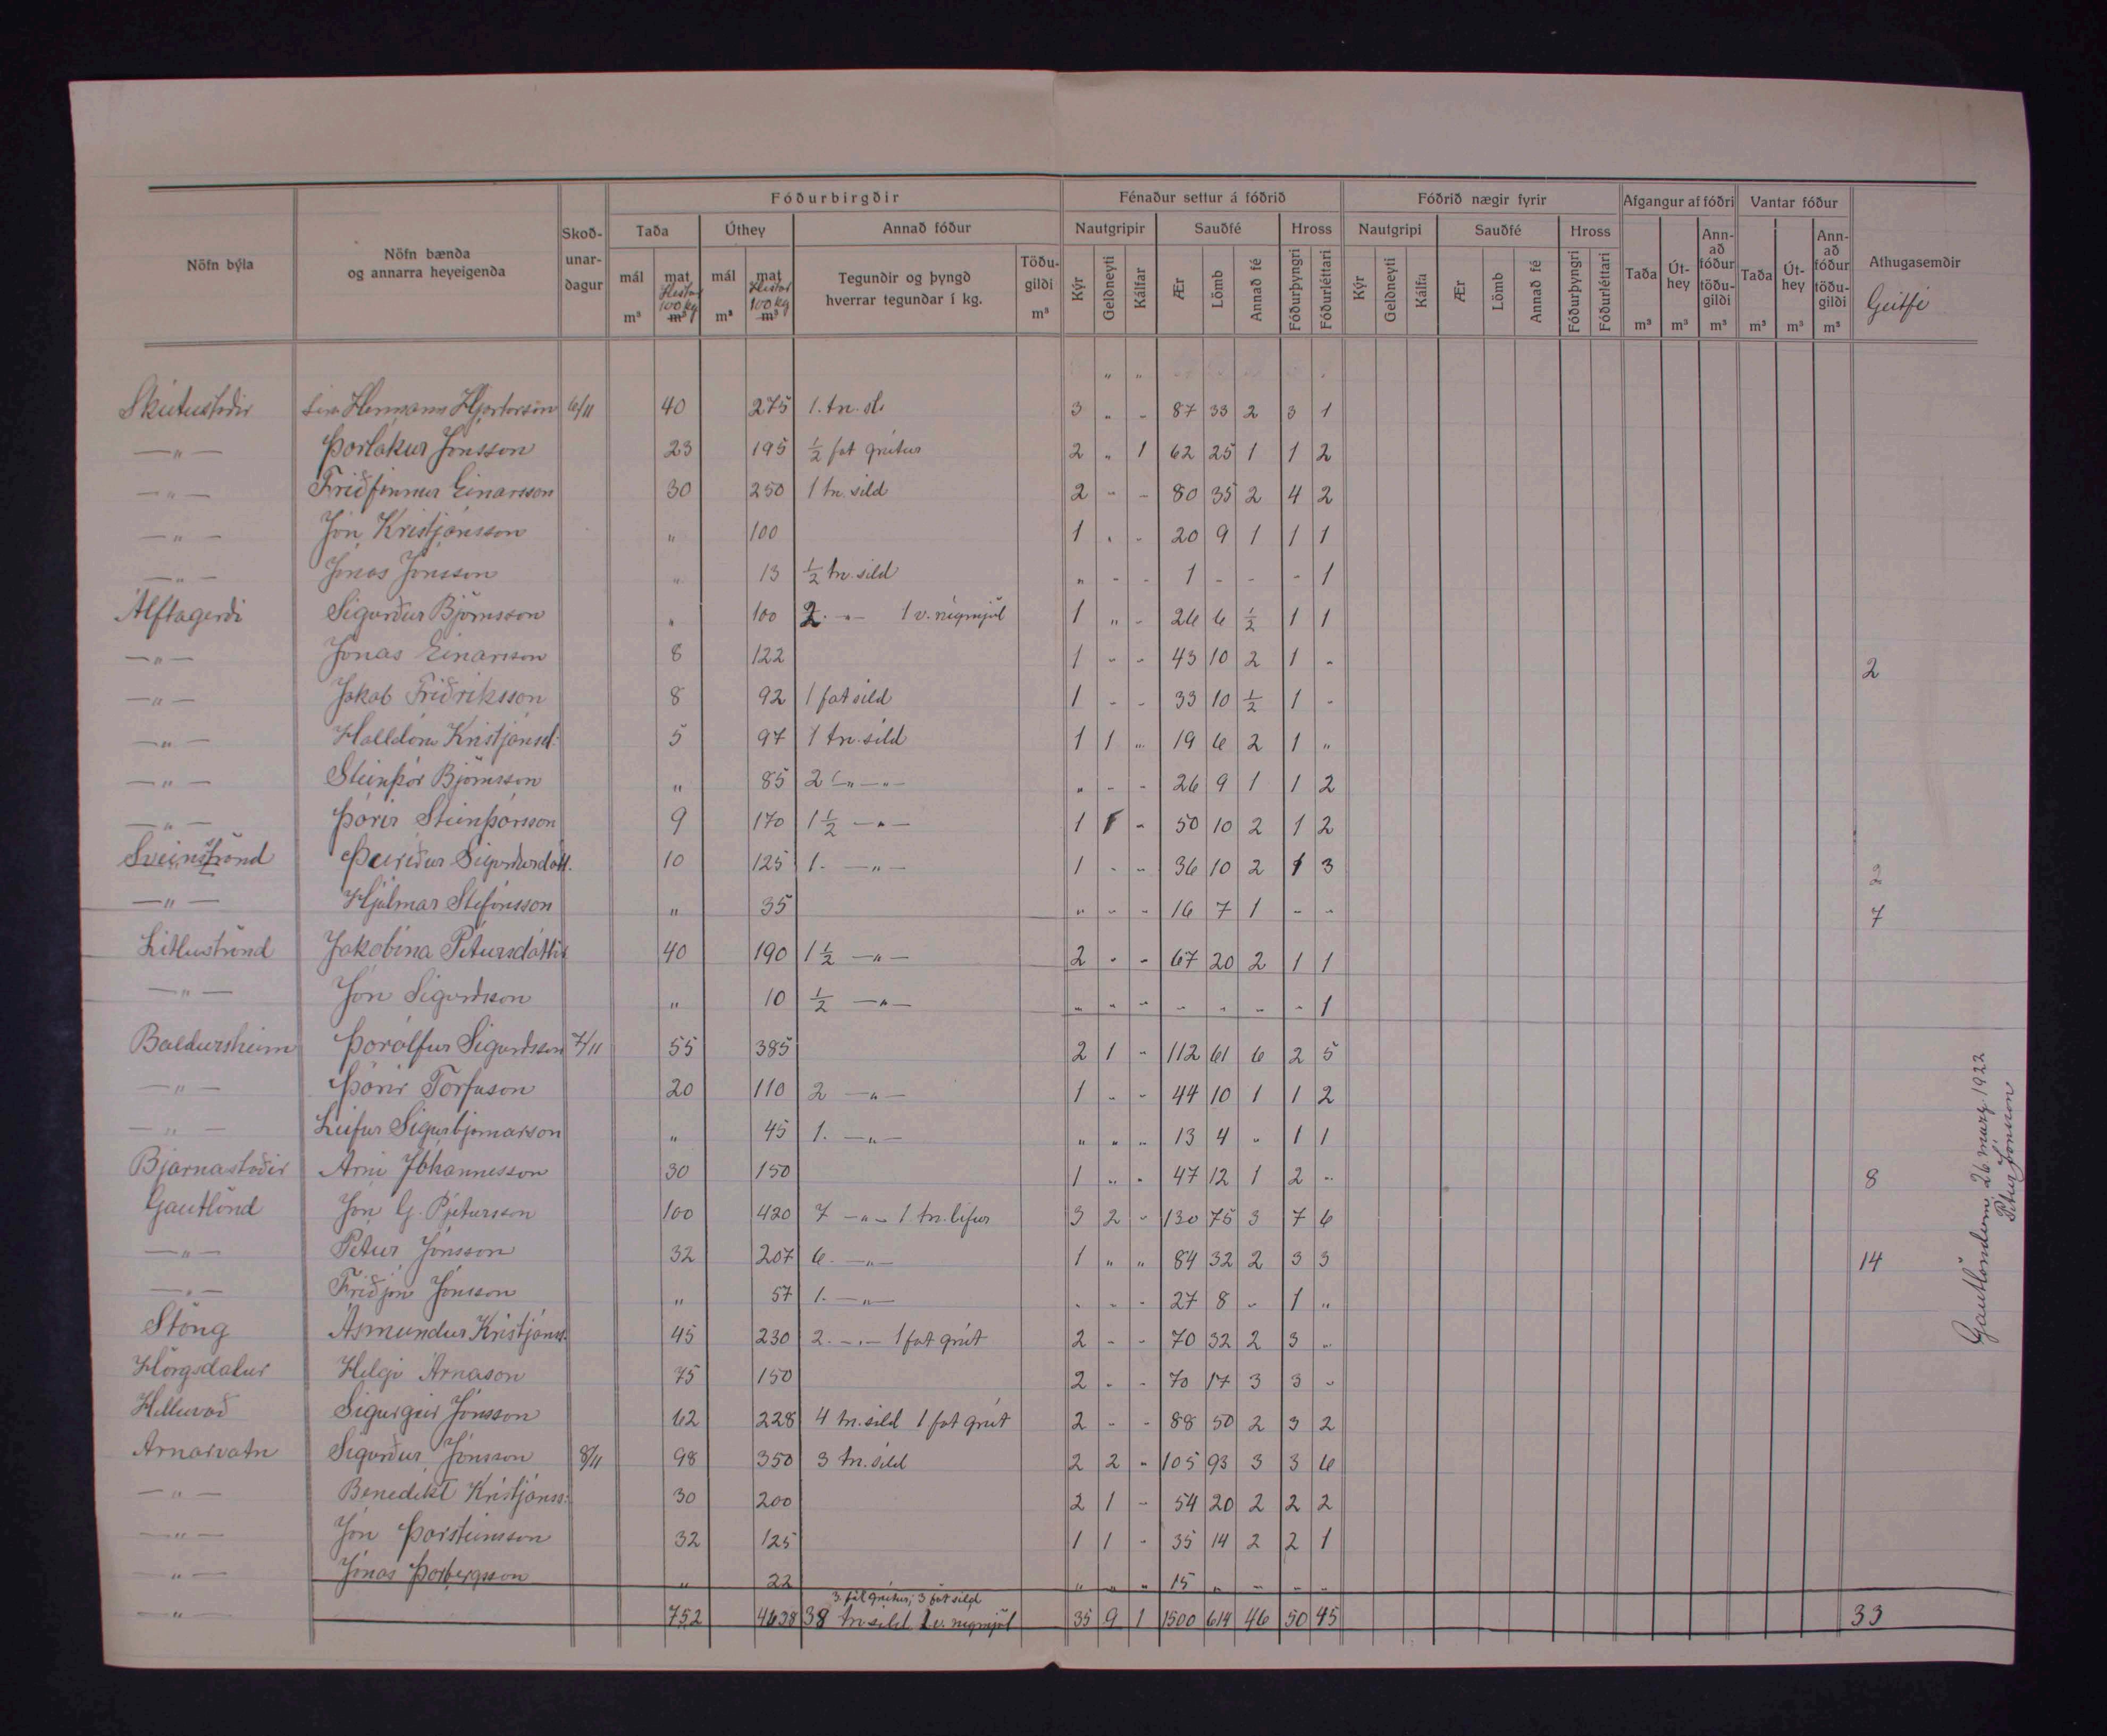 Fóðurbirgðir | Fénaður settur á fóðrið | Fóðrið nægir fyrir | Afgangur af fóðri | Vantar fóður
Nöfn býla | Nöfn bænda og annarra heyeigenda | Skoðunardagur | Taða | Úthey | Annað fóður | Nautgripir | Sauðfé | Hross | Nautgripi | Sauðfé | Hross | Taða m³ | Úthey m³ | Annað fóður töðugildi m³ | Taða m³ | Úthey m³ | Annað fóður töðugildi m³ | Athugasemdir Geitfé
mál m³ | mat Hestar 100 kg m³ | mál m³ | mat Hestar 100 kg m³ | Tegundir og þyngd hverrar tegundar í kg. | Töðugildi m³ | Kýr | Geldneyti | Kálfar | Ær | Lömb | Annað fé | Fóðurþyngri | Fóðurléttari | Kýr | Geldneyti | Kálfa | Ær | Lömb | Annað fé | Fóðurþyngri | Fóðurléttari
" "
Skútustöðir | Hermann Hjartarson | 6/11 | 40 | 275 | 1. tn. | 3 | " | - | 87 | 33 | 2 | 3 | 1
—"— | Þorlákur Jónsson | 23 | 195 | ½ fat grútur | 2 | " | 1 | 62 | 25 | 1 | 1 | 2
—"— | Friðfinnur Einarsson | 30 | 250 | 1 tn. síld | 2 | - | - | 80 | 35 | 2 | 4 | 2
—"— | Jón Kristjánsson | " | 100 | 1 | - | - | 20 | 9 | 1 | 1 | 1
—"— | Jónas Jónsson | " | 13 | ½ tn. síld | " | - | - | 1 | - | - | - | 1
Álftagerði | Sigurður Björnsson | " | 100 | 2. -"- 1 v. rúgmjöl | 1 | " | - | 26 | 6 | ½ | 1 | 1
—"— | Jónas Einarsson | 8 | 122 | 1 | - | - | 43 | 10 | 2 | 1 | - | 2
—"— | Jakob Friðriksson | 8 | 92 | 1 fat síld | 1 | - | - | 33 | 10 | ½ | 1 | -
—"— | Halldóra Kristjánsd: | 5 | 97 | 1 tn. síld | 1 | 1 | " | 19 | 6 | 2 | 1 | "
—"— | Steinþór Björnsson | " | 85 | 2 -"- -"- | " | - | - | 26 | 9 | 1 | 1 | 2
—"— | Þórir Steinþórsson | 9 | 170 | 1½ —"— | 1 | 1 | - | 50 | 10 | 2 | 1 | 2
Sveinströnd | Þuríður Sigurðurdótt. | 10 | 125 | 1. —"— | 1 | - | - | 36 | 10 | 2 | 1 | 3 | 2
—"— | Hjálmar Stefánsson | " | 35 | " | - | - | 16 | 7 | 1 | - | - | 7
Litluströnd | Jakobína Pétursdóttir | 40 | 190 | 1½ —"— | 2 | - | - | 67 | 20 | 2 | 1 | 1
—"— | Jón Sigurðsson | " | 10 | ½ —"— | - | - | - | - | - | - | - | 1
Baldursheim | Þórólfur Sigurðsson | 7/11 | 55 | 385 | 2 | 1 | - | 112 | 61 | 6 | 2 | 5
—"— | Þórir Torfason | 20 | 110 | 2 —"— | 1 | - | - | 44 | 10 | 1 | 1 | 2
—"— | Leifur Sigurbjörnarson | " | 45 | 1. —"— | " | " | - | 13 | 4 | - | 1 | 1
Bjarnastöðir | Árni Jóhannesson | 30 | 150 | 1 | " | - | 47 | 12 | 1 | 2 | - | 8
Gautlönd | Jón G. Pjetursson | 100 | 420 | 7 —"— 1 tn. lifur | 3 | 2 | - | 130 | 75 | 3 | 7 | 6
—"— | Pétur Jónsson | 32 | 207 | 6. —"— | 1 | " | " | 84 | 32 | 2 | 3 | 3 | 14
—"— | Friðjón Jónsson | " | 57 | 1. —"— | - | - | - | 27 | 8 | - | 1 | "
Stöng | Ásmundur Kristjánss. | 45 | 230 | 2. —"— 1 fat grút | 2 | - | - | 70 | 32 | 2 | 3 | -
Hörgsdalur | Helgi Árnason | 75 | 150 | 2 | - | - | 70 | 17 | 3 | 3 | -
Helluvað | Sigurgeir Jónsson | 62 | 228 | 4 tn. síld 1 fat grút | 2 | - | - | 88 | 50 | 2 | 3 | 2
Arnarvatn | Sigurður Jónsson | 8/11 | 98 | 350 | 3 tn. síld | 2 | 2 | - | 105 | 93 | 3 | 3 | 6
—"— | Benedikt Kristjánss: | 30 | 200 | 2 | 1 | - | 54 | 20 | 2 | 2 | 2
—"— | Jón Þorsteinsson | 32 | 125 | 1 | 1 | - | 35 | 14 | 2 | 2 | 1
—"— | Jónas Þorbergsson | " | 22 | " | " | " | 15 | " | - | - | -
3 föt grútur; 3 fat síld
—"— | 752 | 4638 | 38 tn síld 1 v. rúgmjöl | 35 | 9 | 1 | 1500 | 614 | 46 | 50 | 45 | 33
Gautlöndum, 26 marz 1922
Pétur Jónsson